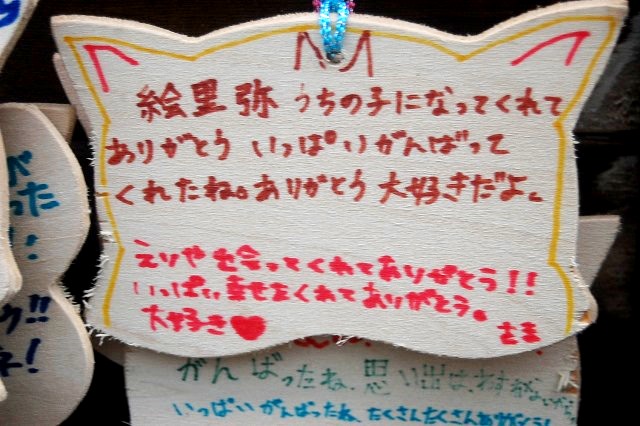 絵里弥 うちの子になってくれて
ありがとう いっぱいがんばって
くれたね。ありがとう 大好きだよ。
えりや 出会ってくれてありがとう!!
いっぱい幸せをくれてありがとう。
大好き♥
がんばったね、思い出は、
いっぱいがんばったね、たくさんたくさん